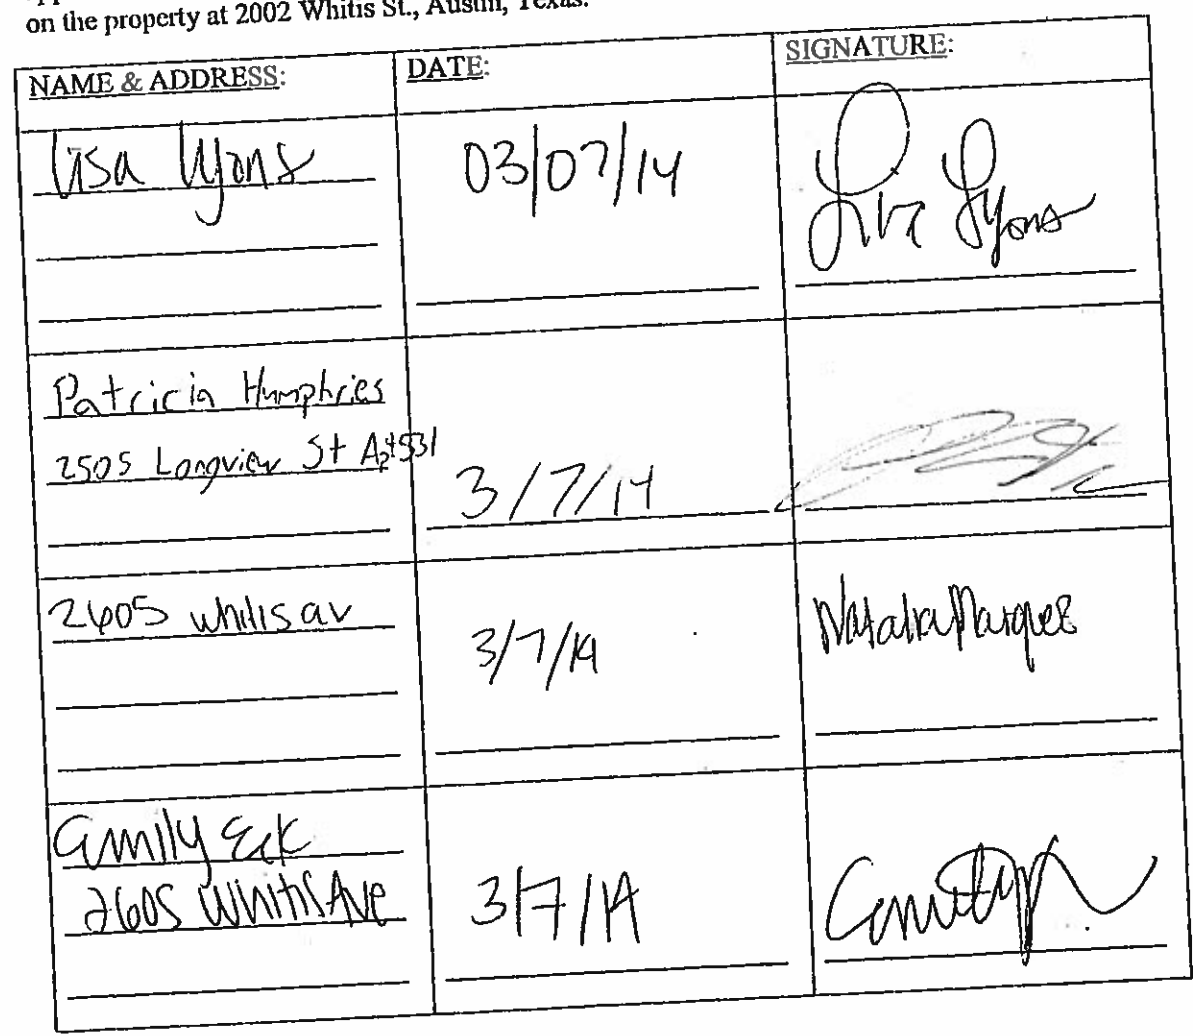 on the property at 2002 Whitis St., Austin, Texas.
NAME & ADDRESS: DATE: SIGNATURE:
Lisa Lyons 03/07/14 Lisa Lyons
Patricia Humphries
2505 Longview St Apt 531 3/7/14
2605 whitis av 3/7/14 Natalia Marquez
Emily Eck
2605 Whitis Ave 3/7/14